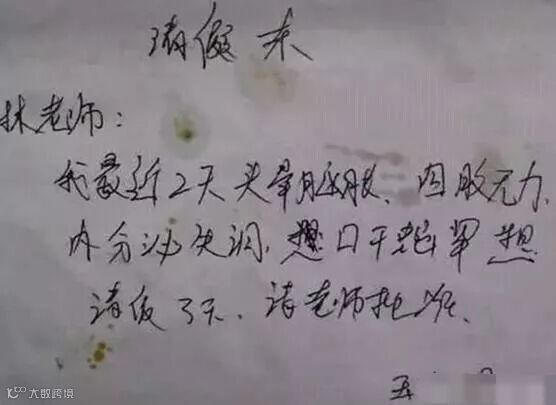 请假条
林老师:
我最近2天头晕脑胀、四肢无力,
内分泌失调,口干舌燥 想
请假3天、请老师批准、
五
大数跨境